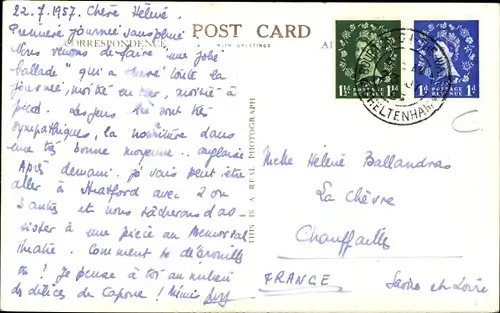 22.7.1957. Chère Hélène.
Première journée sans pluie
Nous venons de faire "une jolie
ballade" qui a duré toute la
journée, moitié en car, moitié à
pied. Les gens ici sont très
sympathiques, la nourriture dans
une très bonne moyenne.. anglaise
Après demain, je vais peut-être
aller à Stratford avec 2 ou
3 autres et nous tâcherons d'as-
sister à une pièce au Memorial
Theatre. Comment te débrouilles
tu! Je pense à toi au milieu
des délices de Capoue!
POST CARD
CORRESPONDENCE
THIS IS A REAL PHOTOGRAPH
POSTAGE REVENUE
1½D 1½D
POSTAGE REVENUE
1D 1D
CHELTENHAM
Melle Hélène Ballandras
La Chèvre
Chauffailles
FRANCE Saône et Loire